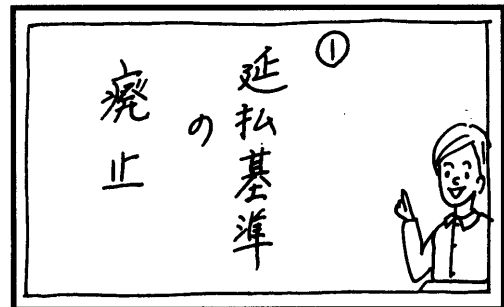 ①
延払基準
の
廃止